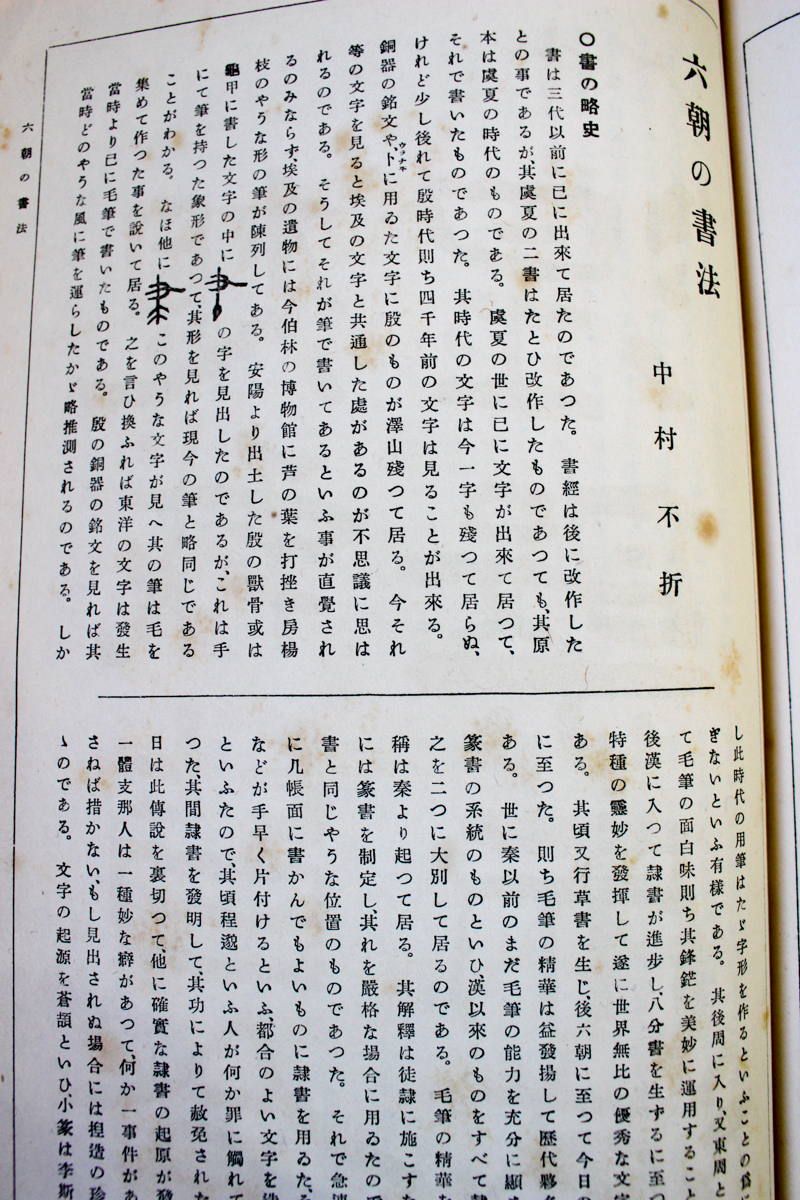 六朝の書法
中村不折
〇書の略史
書は三代以前に已に出來て居たのであつた。書經は後に改作した
との事であるが、其虞夏の二書はたとひ改作したものであつても、其原
本は虞夏の時代のものである。虞夏の世に已に文字が出來て居つて、
それで書いたものであつた。其時代の文字は今一字も殘つて居らぬ、
けれど少し後れて殷時代則ち四千年前の文字は見ることが出來る。
銅器の銘文や、卜ウラナキに用ゐた文字に殷のものが澤山殘つて居る。今それ
等の文字を見ると埃及の文字と共通した處があるのが不思議に思は
れるのである。そうしてそれが筆で書いてあるといふ事が直覺され
るのみならず、埃及の遺物には今伯林の博物館に芦の葉を打挫き房楊
枝のやうな形の筆が陳列してある。安陽より出土した殷の獸骨或は
龜甲に書した文字の中に の字を見出したのであるが、これは手
にて筆を持つた象形であつて、其形を見れば現今の筆と略同じである
ことがわかる。なほ他に このやうな文字が見へ其の筆は毛を
集めて作つた事を說いて居る。之を言ひ換ふれば東洋の文字は發生
當時より已に毛筆で書いたものである。殷の銅器の銘文を見れば其
當時どのやうな風に筆を運らしたかゞ略推測されるのである。しか
し此時代の用筆はたゞ字形を作るといふことの
ぎないといふ有樣である。其後周に入り、又東周と
て毛筆の面白味則ち其鋒鋩を美妙に運用すること
後漢に入つて隷書が進步し、八分書を生ずるに至つ
特種の靈妙を發揮して遂に世界無比の優秀な文
ある。其頃又行草書を生じ、後六朝に至つて今日の
に至つた。則ち毛筆の精華は益發揚して歷代
ある。世に秦以前のまだ毛筆の能力を充分に顯
篆書の系統のものといひ、漢以來のものをすべて隷
之を二つに大別して居るのである。毛筆の精華を
稱は秦より起つて居る。其解釋は徒隷に施こすた
には篆書を制定し、其れを嚴格な場合に用ゐたので
書と同じやうな位置のものであつた。それで急速
に几帳面に書かんでもよいものに隷書を用ゐるた、そ
などが手早く片付けるといふ、都合のよい文字を
といふたので、其頃程邈といふ人が何か罪に觸れて
つた、其間隷書を發明して、其功によりて赦免された
日は此傳說を裏切つて、他に確實な隷書の起原が發
一體支那人は一種妙な癖があつて、何か一事件があ
さねば措かない、もし見出されぬ場合には揑造の珍
ゝのである。文字の起源を蒼頡といひ、小篆は李斯
六朝の書法